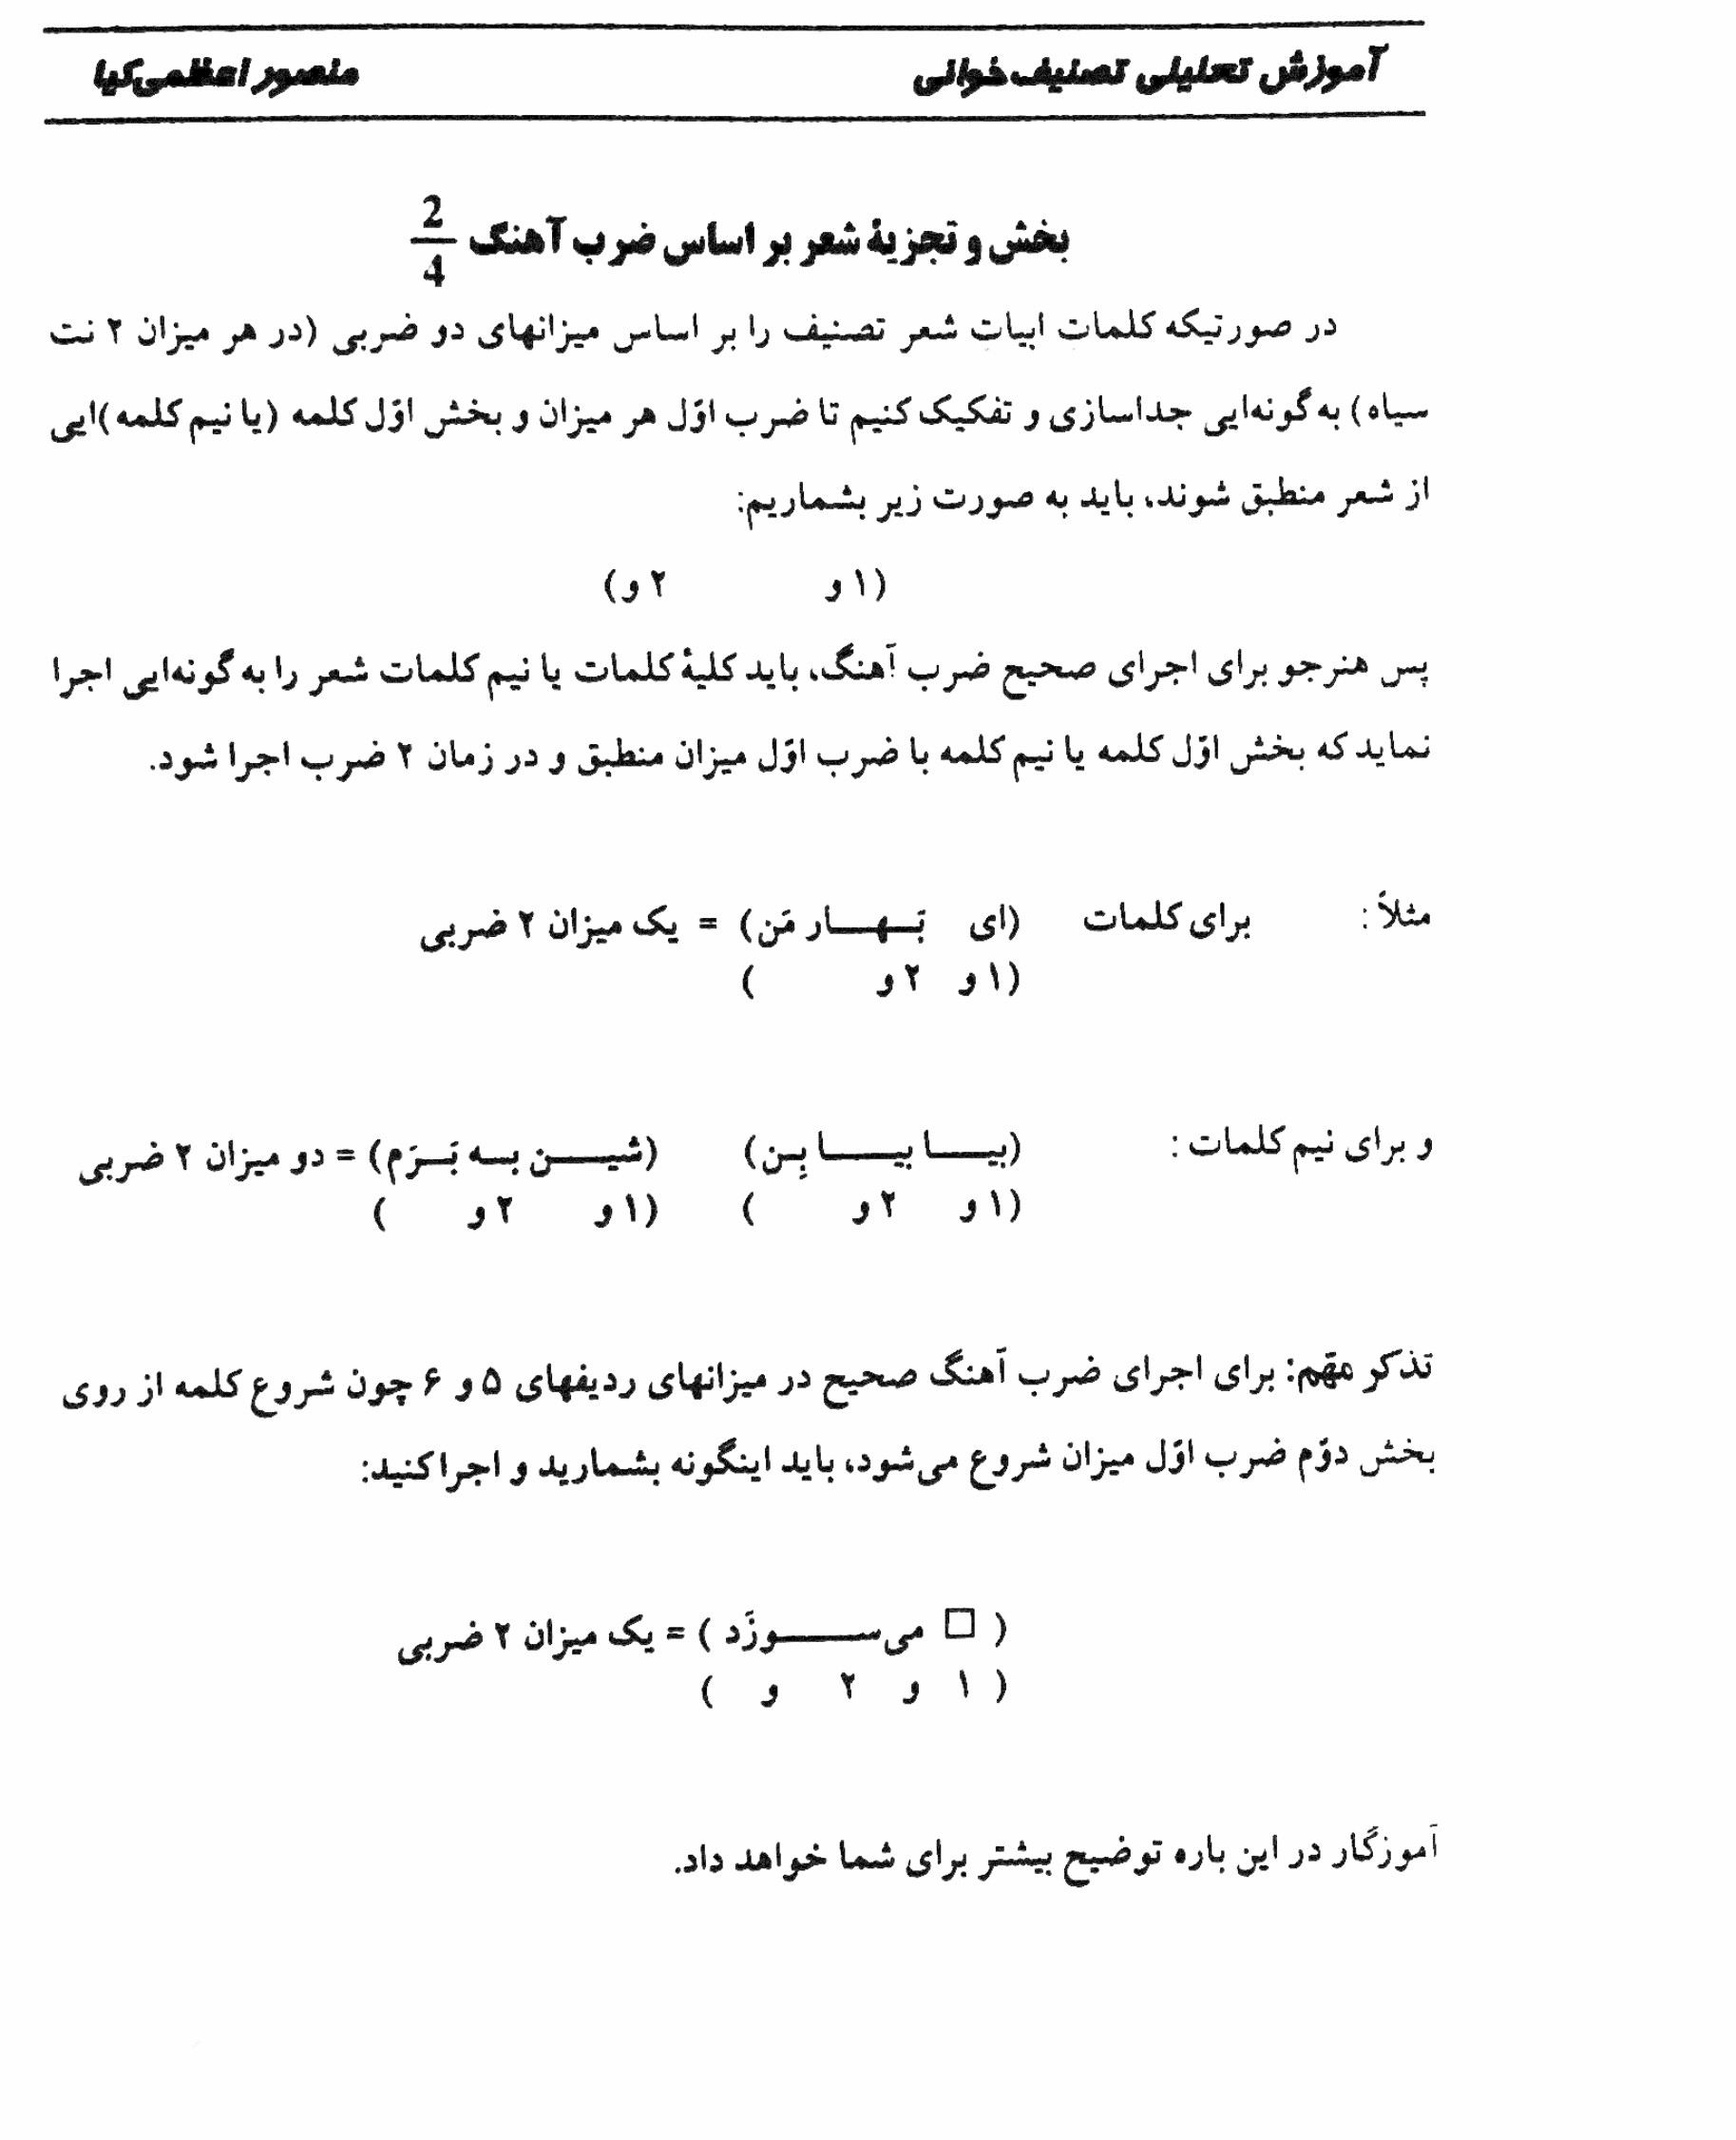 آموزش تحلیلی تصنیف‌خوانی منصور اعظمی‌کیا
بخش و تجزیهٔ شعر بر اساس ضرب آهنگ 2/4
در صورتیکه کلمات ابیات شعر تصنیف را بر اساس میزانهای دو ضربی (در هر میزان ۲ نت
سیاه) به گونه‌ایی جداسازی و تفکیک کنیم تا ضرب اوّل هر میزان و بخش اوّل کلمه (یا نیم کلمه)ایی
از شعر منطبق شوند، باید به صورت زیر بشماریم:
(۱ و ۲ و)
پس هنرجو برای اجرای صحیح ضرب آهنگ، باید کلیهٔ کلمات یا نیم کلمات شعر را به گونه‌ایی اجرا
نماید که بخش اوّل کلمه یا نیم کلمه با ضرب اوّل میزان منطبق و در زمان ۲ ضرب اجرا شود.
مثلاً : برای کلمات (ای بَـهـــار مَن) = یک میزان ۲ ضربی
(۱ و ۲ و )
و برای نیم کلمات : (بیـــا بیـــا بِـن) (شیـــن بـه بَـرَم) = دو میزان ۲ ضربی
(۱ و ۲ و ) (۱ و ۲ و )
تذکر مهّم: برای اجرای ضرب آهنگ صحیح در میزانهای ردیفهای ۵ و ۶ چون شروع کلمه از روی
بخش دوّم ضرب اوّل میزان شروع می‌شود، باید اینگونه بشمارید و اجرا کنید:
( □ می‌ســـوزَد ) = یک میزان ۲ ضربی
( ۱ و ۲ و )
آموزگار در این باره توضیح بیشتر برای شما خواهد داد.